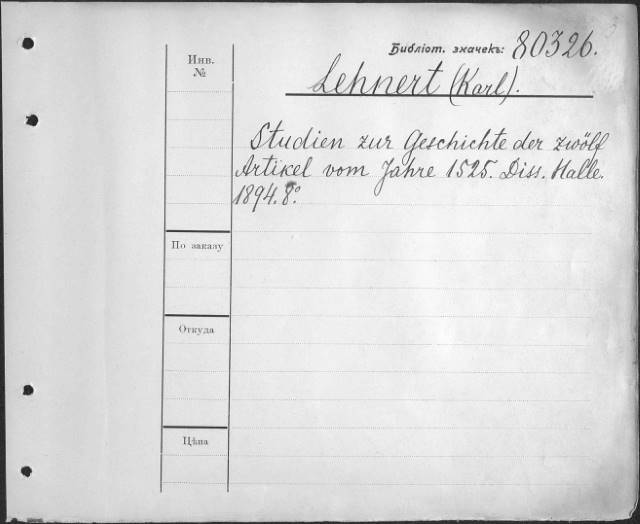 Библіот. значекъ: 80326.
Инв.
№
Lehnert (Karl).
Studien zur Geschichte der zwölf
Artikel vom Jahre 1525. Diss. Halle.
1894. 8º
По заказу
Откуда
Цѣна